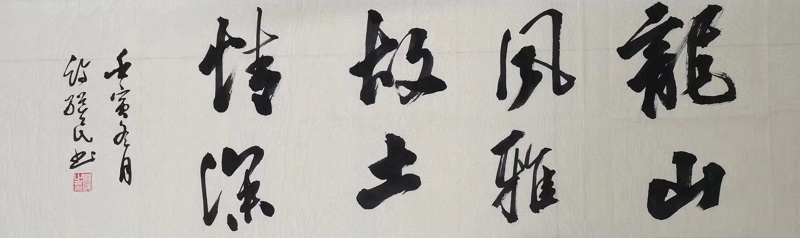 龍山
風雅
故土
情深
壬寅冬月
民书